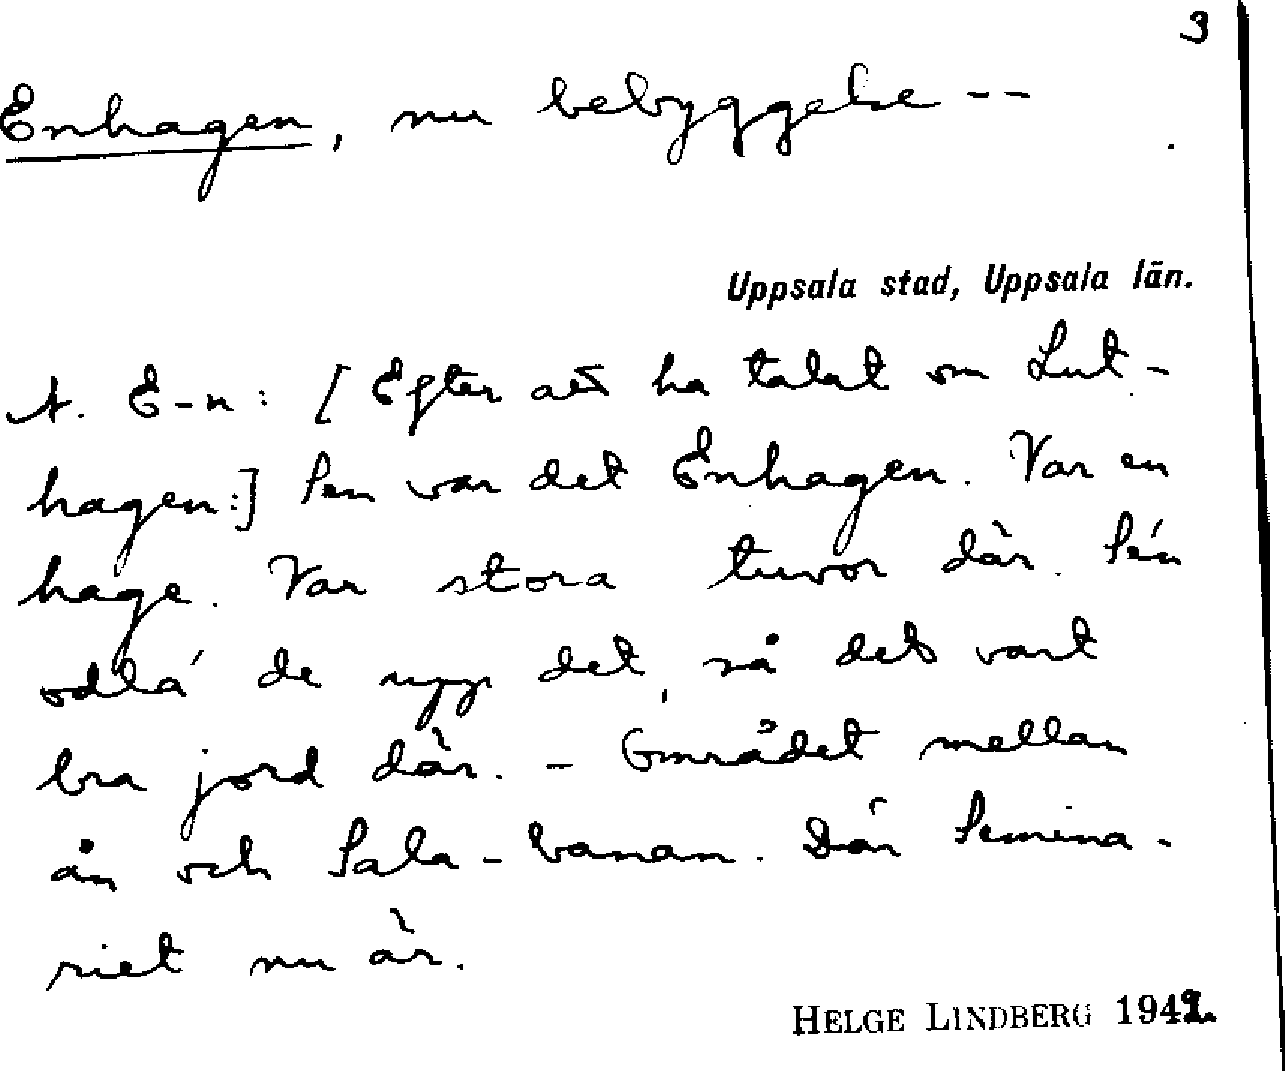 3
Enhagen, nu bebyggelse --
Uppsala stad, Uppsala län.
A. E-n: [Efter att ha talat om Lut-
hagen:] Sen var det Enhagen. Var en
hage. Var stora tuvor där. Sén
odla' de upp det, så det vart
bra jord där. - Området mellan
ån och Sala-banan. Där Semina-
riet nu är.
HELGE LINDBERG 194